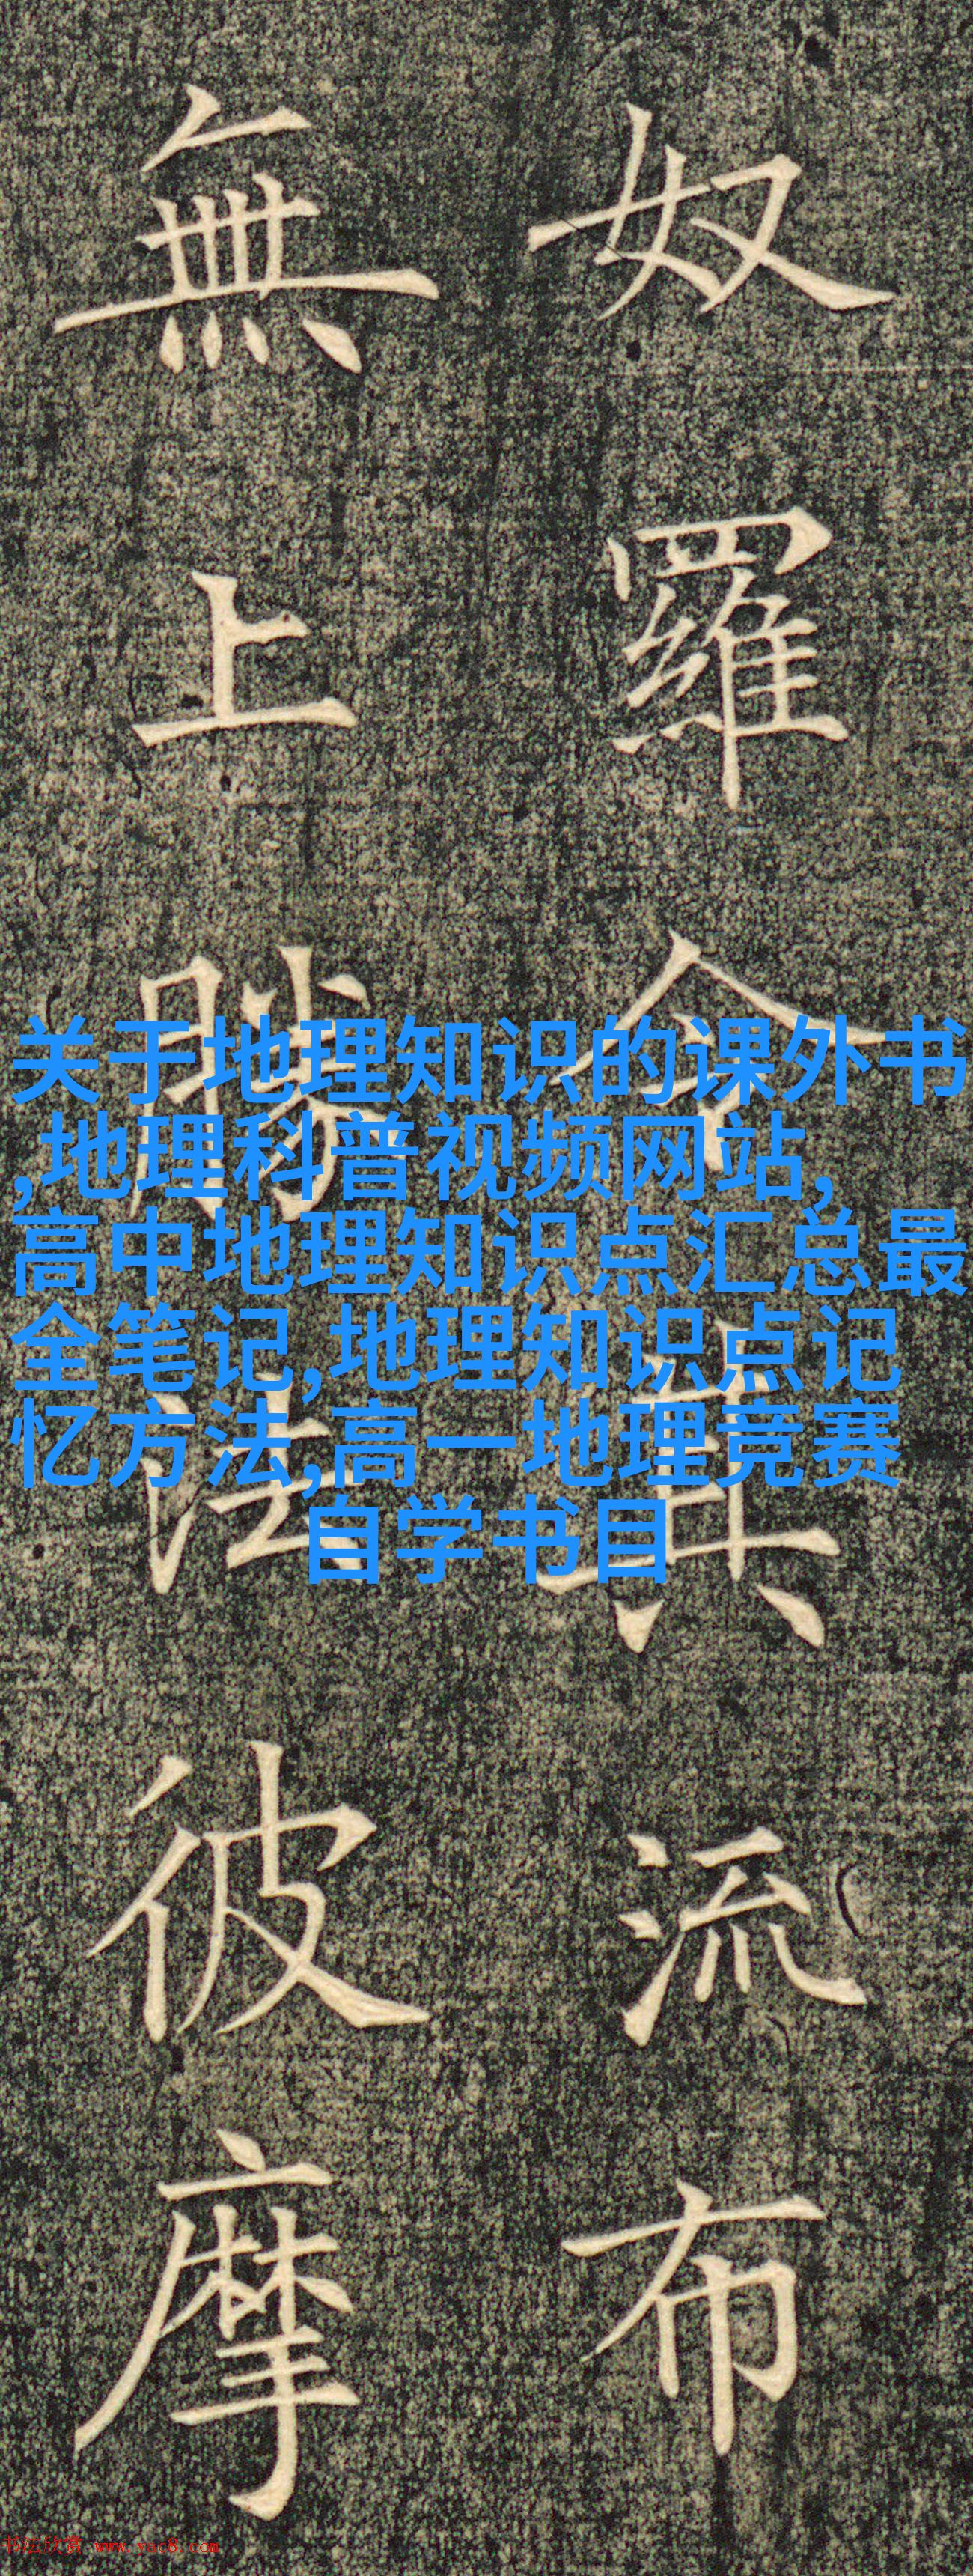 奴羅令其流布
無上勝法彼摩
关于地理知识的课外书
,地理科普视频网站,
高中地理知识点汇总最
全笔记,地理知识点记
忆方法,高一地理竞赛
自学书目
书法欣赏 www.yac8.com